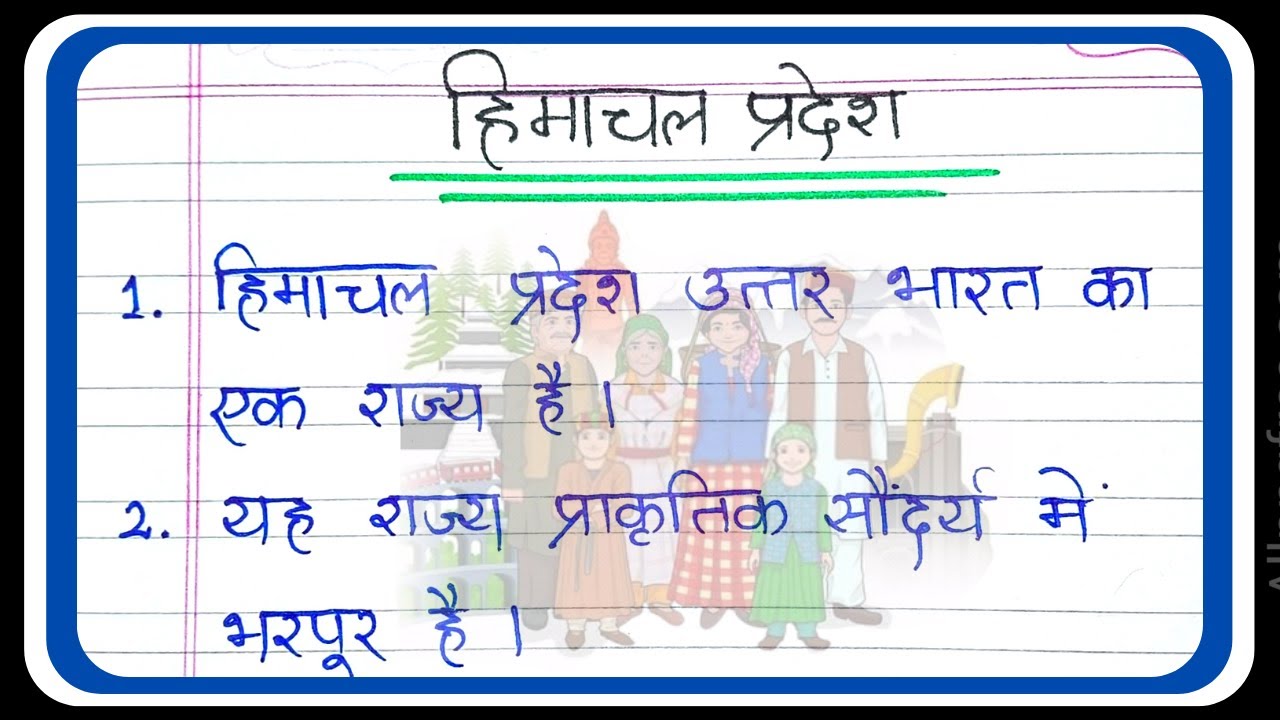 हिमाचल प्रदेश
1. हिमाचल प्रदेश उत्तर भारत का
एक राज्य है।
2. यह राज्य प्राकृतिक सौंदर्य में
भरपूर है।